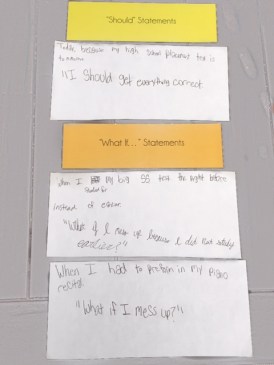 "Should" Statements
Today because my high school placement test is
tomorrow
"I should get everything correct
"What If..." Statements
When I my big SS test the night before
Studied for
instead of earlier.
"What if I mess up because I did not study
earlier?"
When I had to perform in my piano
recital
"What if I mess up?"